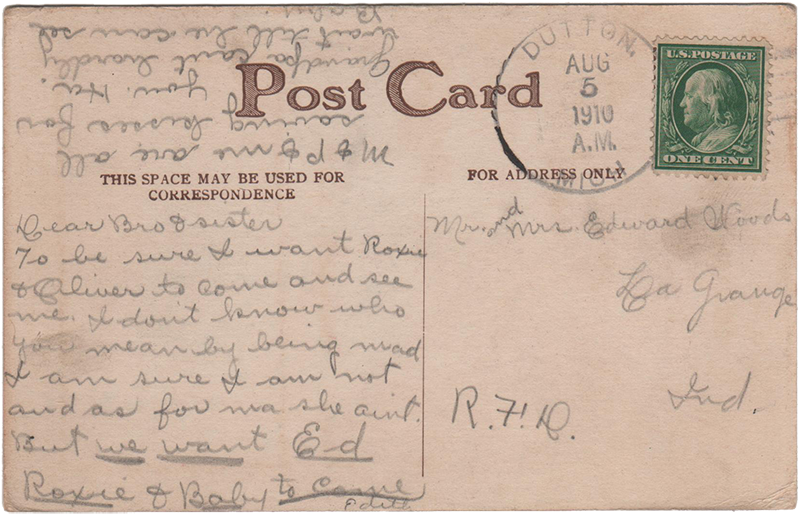 Post Card
THIS SPACE MAY BE USED FOR
CORRESPONDENCE
FOR ADDRESS ONLY
DUTTON,
AUG
5
1910
A.M.
MICH.
U.S. POSTAGE
ONE CENT
Dear Bro & sister
To be sure I want Roxie
& Oliver to come and see
me. I don't know who
you mean by being mad
I am sure I am not
and as for ma she aint.
But we want Ed
Roxie & Baby to come
Edith
M & P & me are all
saving kisses for
you. Ha.
Grandpa can't hardly
wait till he can see
Baby
Mr. and Mrs. Edward Woods
La Grange
Ind.
R.F.D.